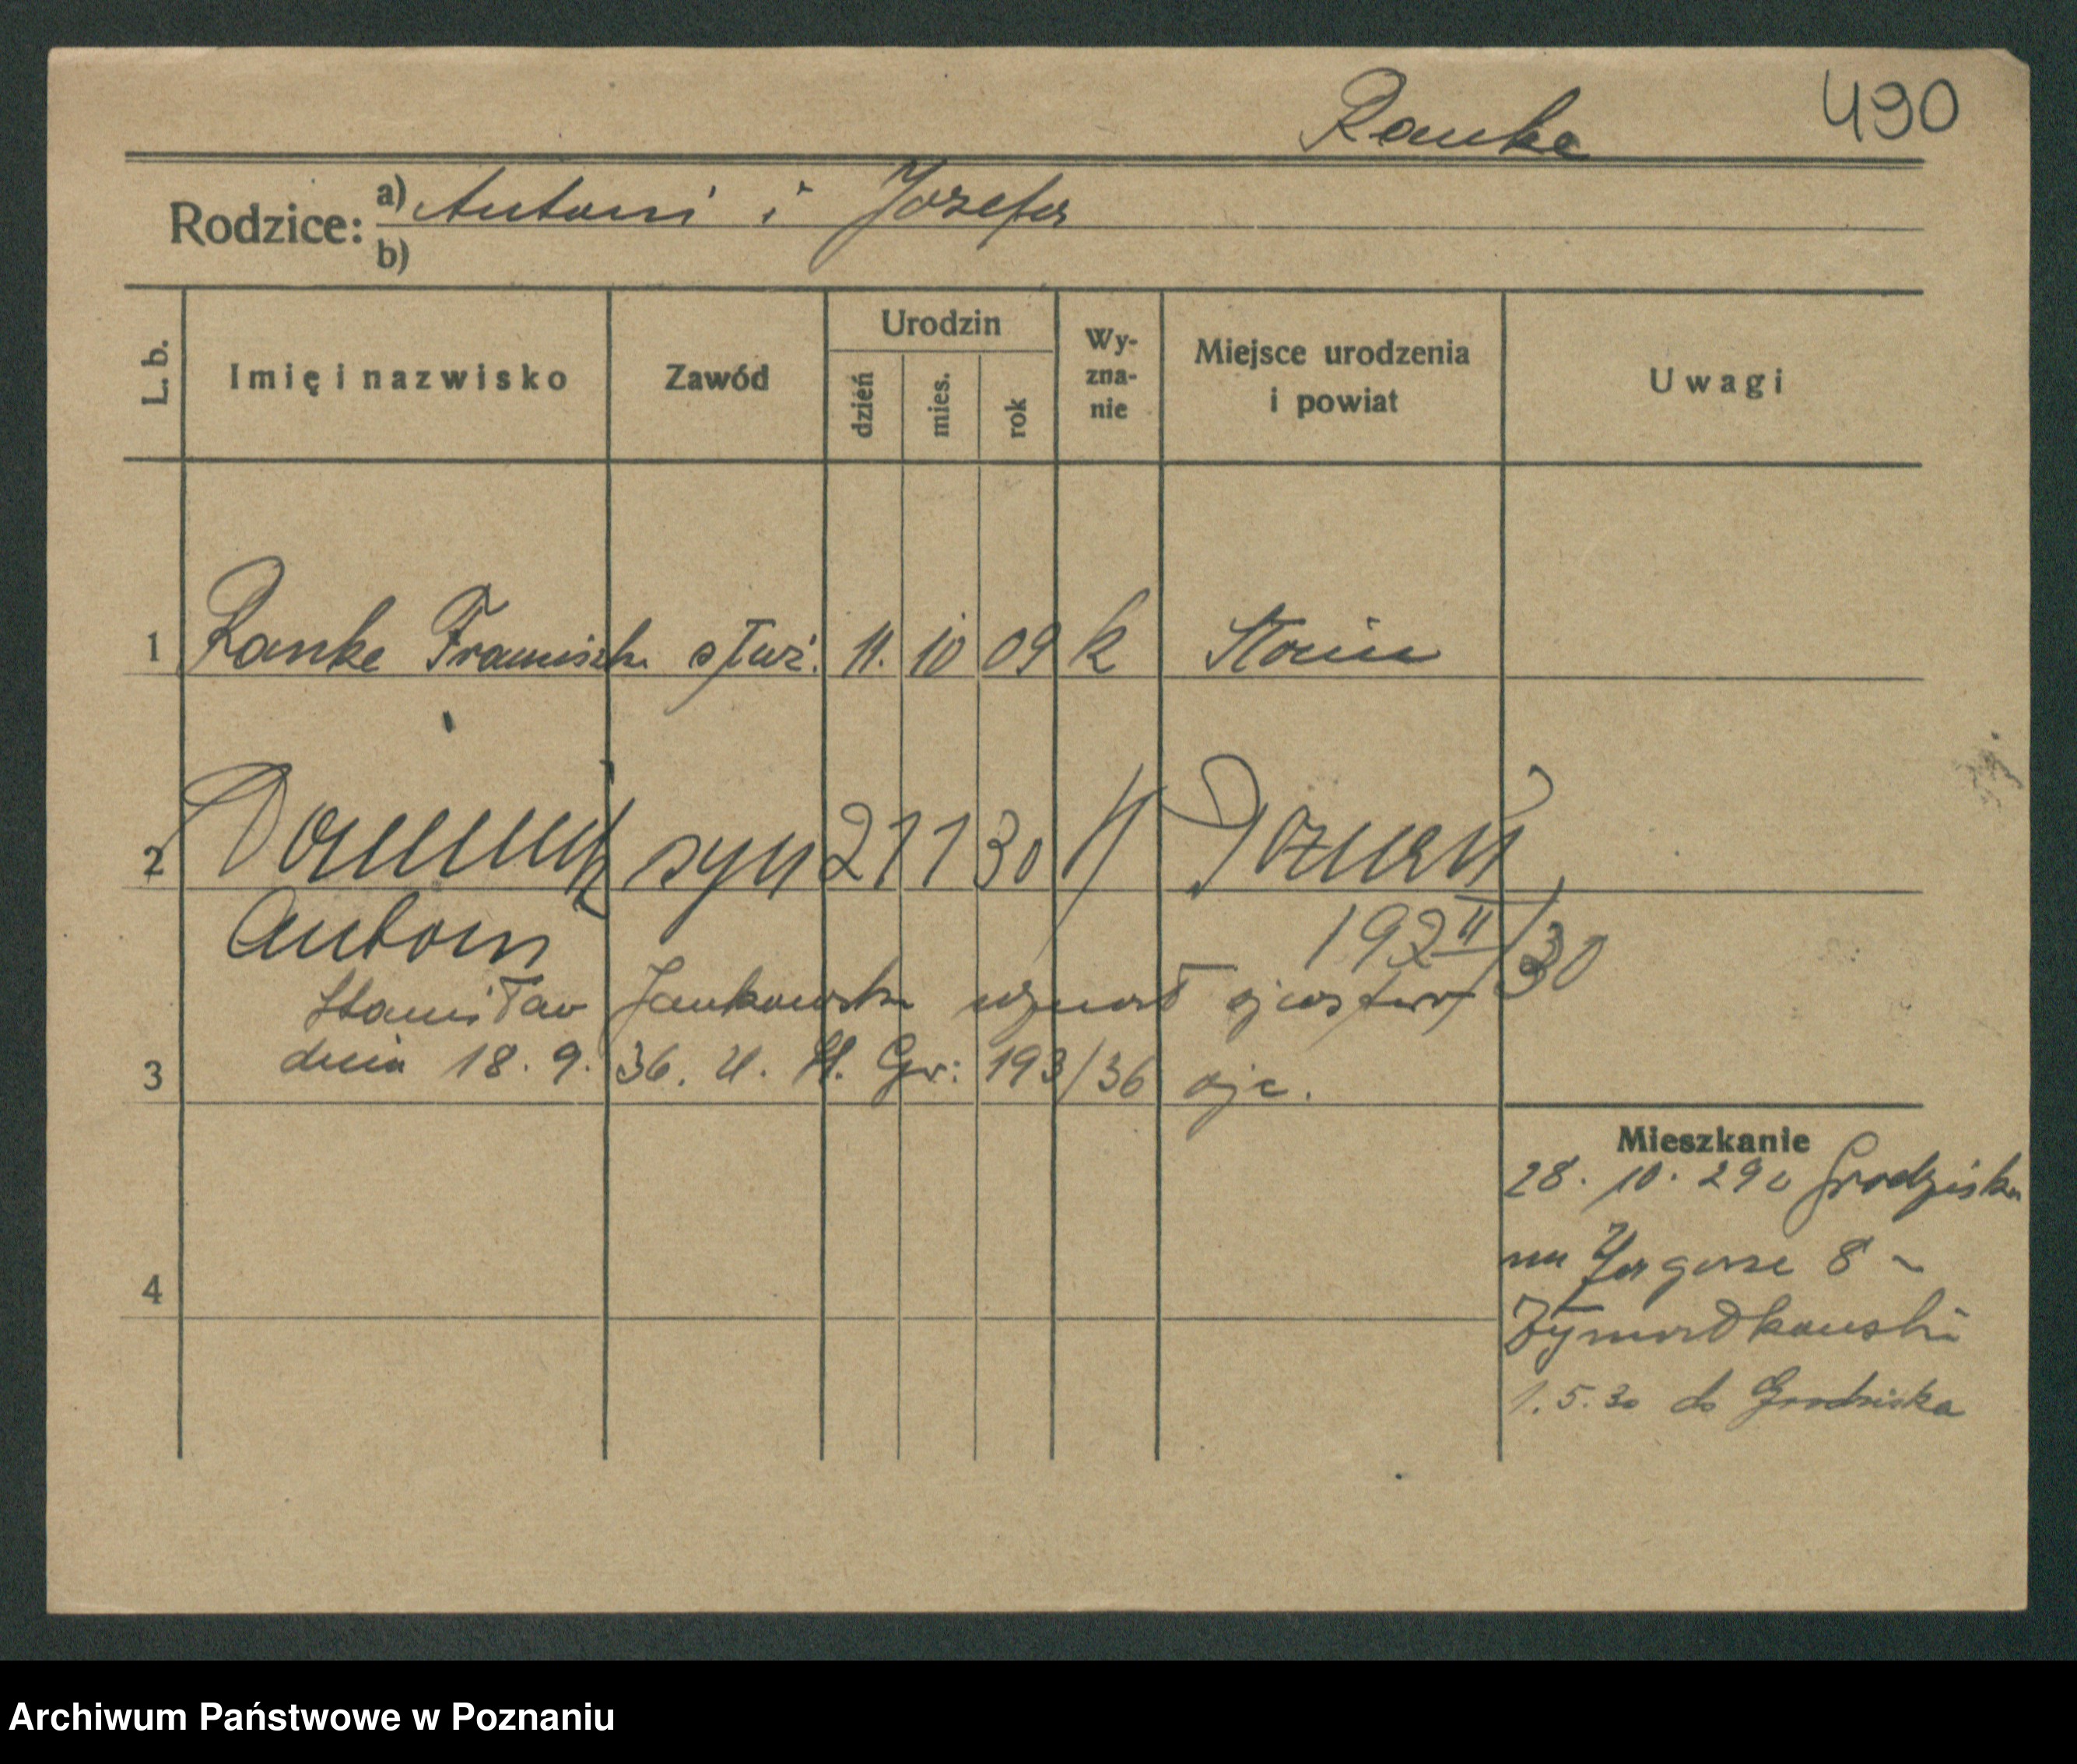 Ranke 490
Rodzice: a) Antoni i Józefa
b)
L. b. Imię i nazwisko Zawód Urodzin dzień mies. rok Wy-zna-nie Miejsce urodzenia i powiat Uwagi
1 Ranke Franciszka służ. 11. 10 09 k Słocin
2 Dominik syn 21 1 30 Poznań
Antoni 192 II/30
Stanisław Jankowski uznał ojcostwo
dnia 18. 9. 36. U. St. Gr: 193/36 ojc.
3
Mieszkanie
28. 10. 29 Grodziska
na Zagórze 8
4
1. 5. 30 do Grodziska
Archiwum Państwowe w Poznaniu